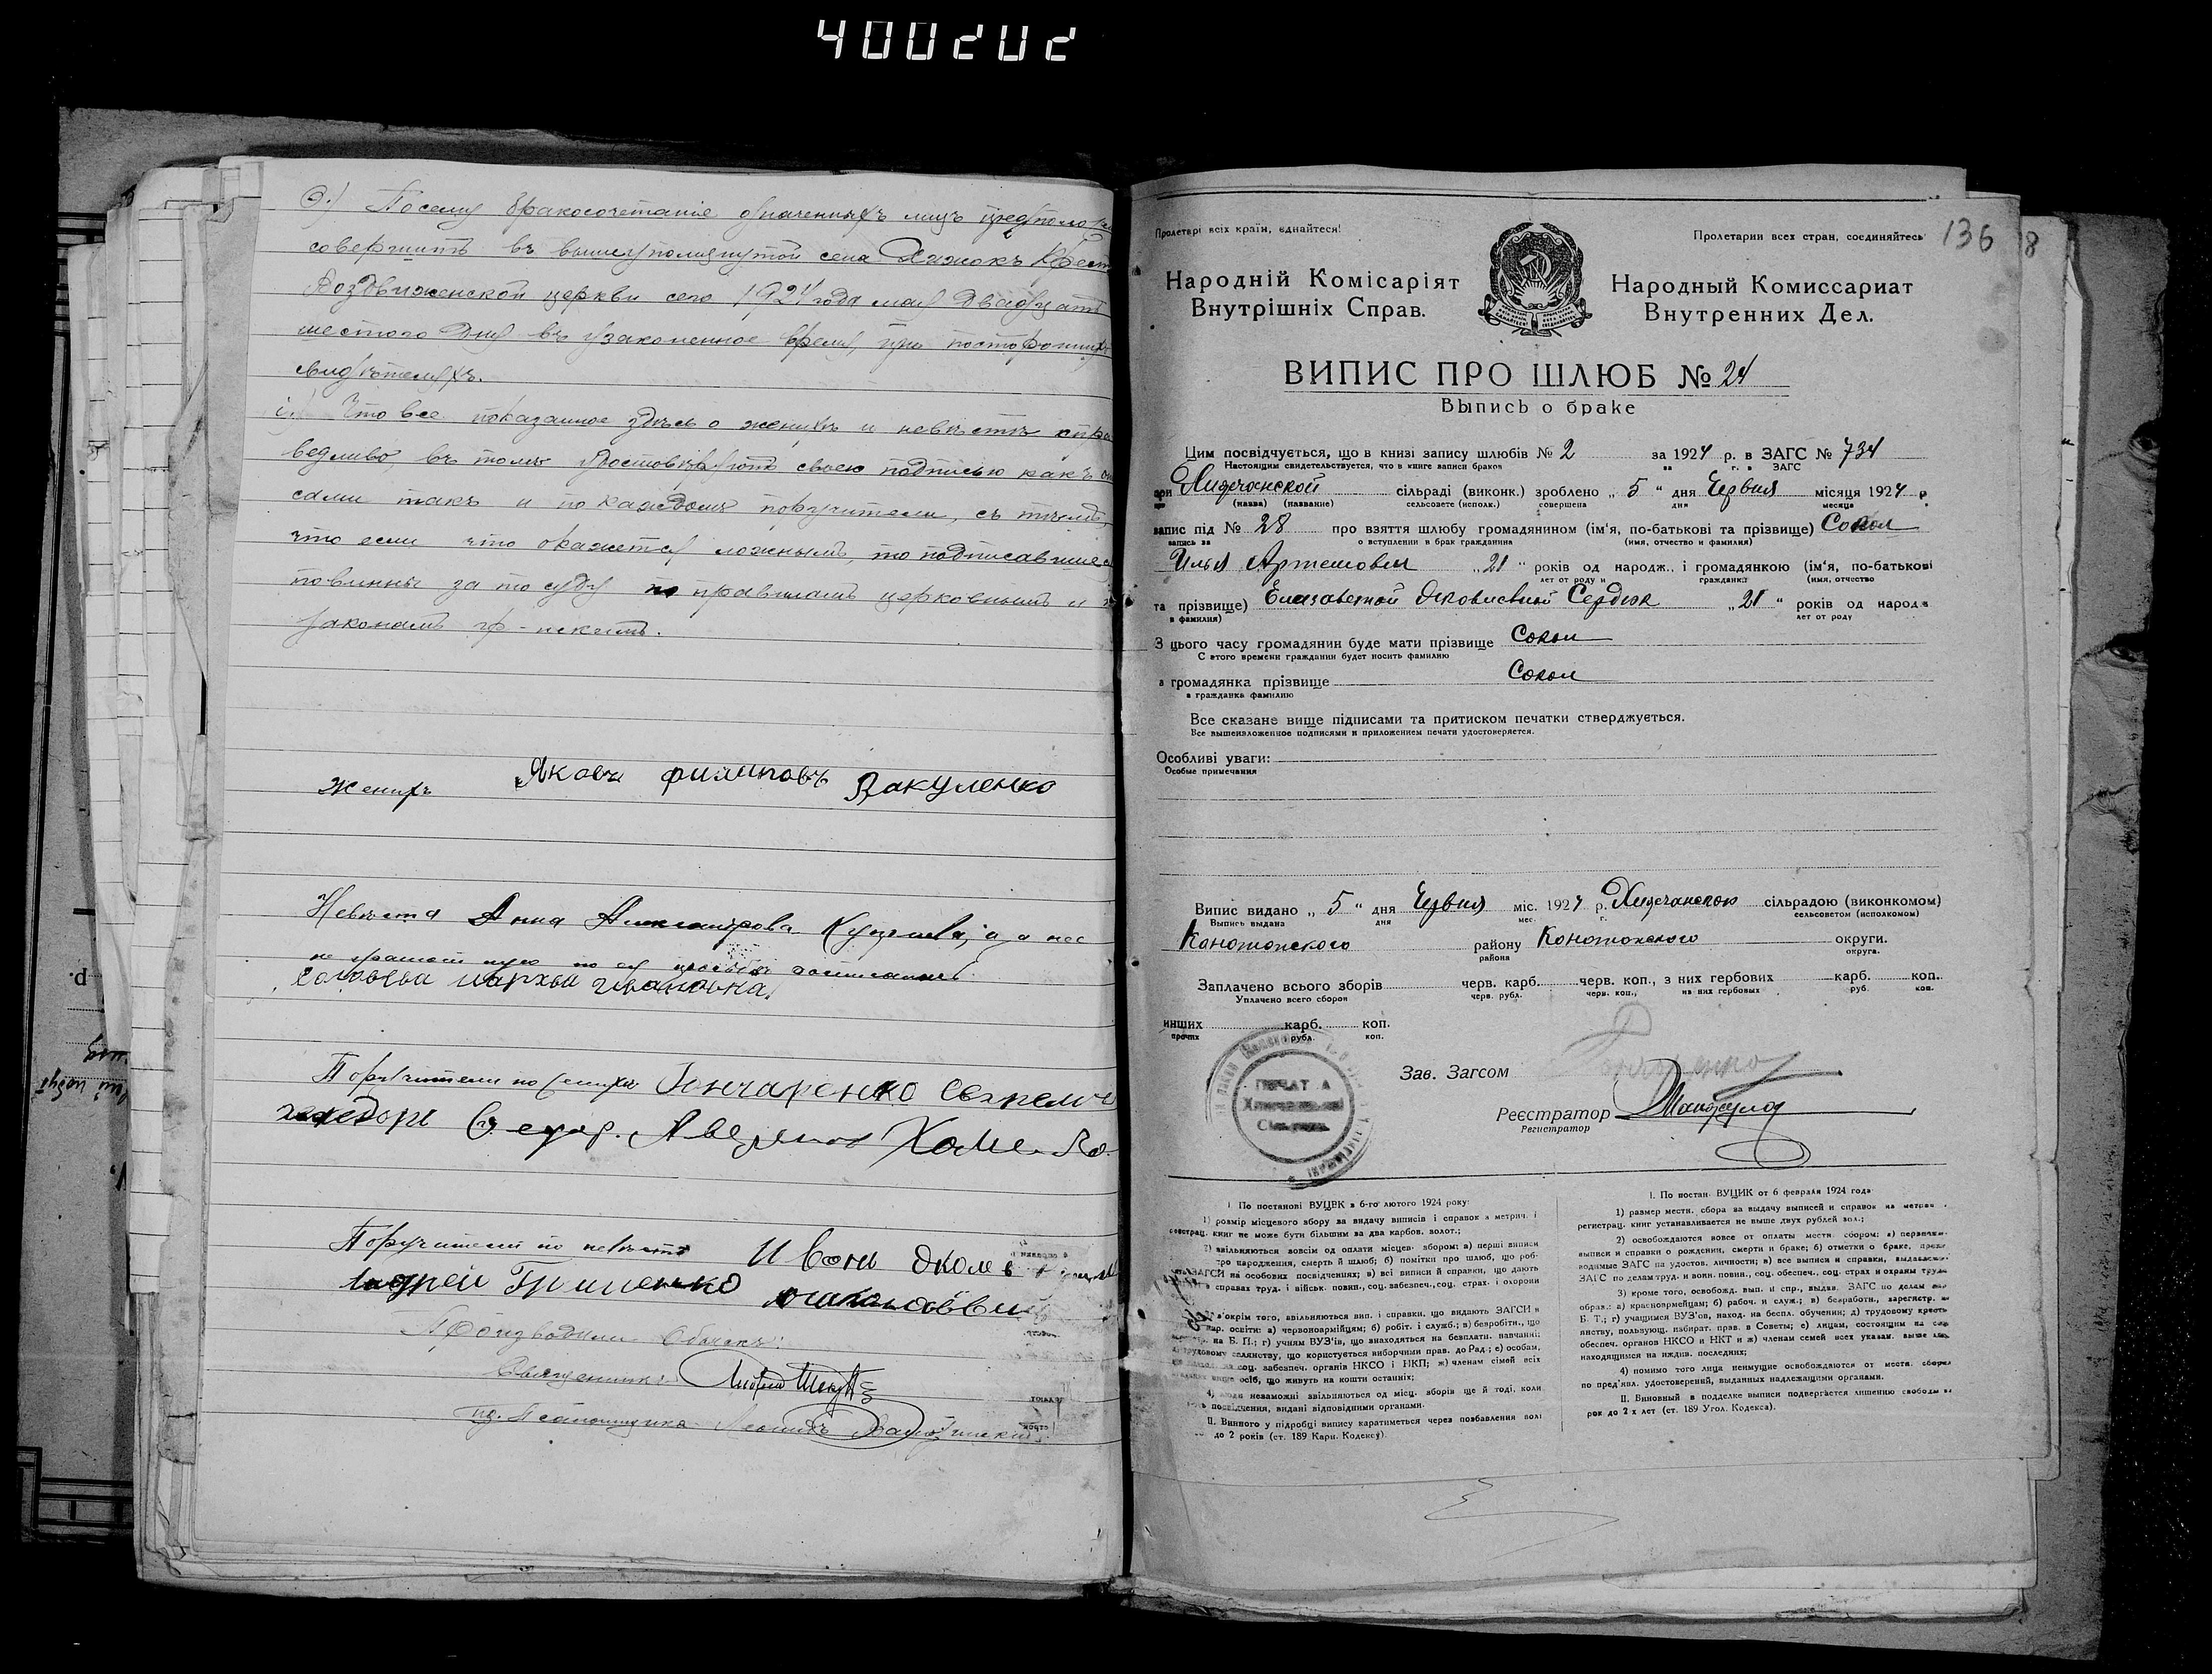 400202
9.) Посему бракосочетаніе означенныхъ лицъ предполож
совершить въ вышеупомянутой села Хижокъ Крест
Воздвиженской церкви сего 1924 года мая двадцать
шестого дня въ узаконенное время, при постороннихъ
свидѣтеляхъ.
Что все показанное здѣсь о женихѣ и невѣстѣ спра
ведливо, въ томъ удостовѣряютъ своею подписью какъ они
сами такъ и по каждомъ поручители, съ тѣмъ,
что если что окажется ложнымъ, то подписавшіеся
повинны за то суду по правиламъ церковнымъ и
законамъ
женихъ Яковъ филиповъ Вакуленко
Невѣста Анна Александрова
не грамот по ея просьбѣ
Поручители по женихѣ Гончаренко
Поручители по невѣстѣ
Андрей
Производили Обыскъ:
Священникъ
Псаломщика Леонидъ
136
8
Пролетарі всіх країн, єднайтеся!
Пролетарии всех стран, соединяйтесь
Народній Комісаріят
Внутрішніх Справ.
Народный Комиссариат
Внутренних Дел.
ВИПИС ПРО ШЛЮБ № 24
Выпись о браке
Цим посвідчується, що в книзі запису шлюбів № 2 за 1924 р. в ЗАГС № 734
Настоящим свидетельствуется, что в книге записи браков за г. в ЗАГС
при сільраді (виконк.) зроблено „ 5 “ дня Червня місяця 1924 р
(назва) (название) сельсовете (исполк.) совершена дня месяца
запис під № 28 про взяття шлюбу громадянином (ім'я, по-батькові та прізвище) Сокол
запись за о вступлении в брак гражданина (имя, отчество и фамилия)
Илья Артемович „21“ років од народж., і громадянкою (ім'я, по-батькові
лет от роду и гражданкі (имя, отчество
та прізвище) Елизаветой Яковлевной Сердюк „21“ років од народж
в фамилия) лет от роду
З цього часу громадянин буде мати прізвище Сокол
С этого времени гражданин будет носить фамилию
а громадянка прізвище Сокол
а гражданка фамилию
Все сказане вище підписами та притиском печатки стверджується.
Все вышеизложенное подписями и приложением печати удостоверяется.
Особливі уваги:
Особые примечания
Випис видано „ 5 “ дня Червня міс. 1924 р. сільрадою (виконкомом)
Выпись выдана дня мес. г. сельсоветом (исполкомом)
Конотопского району Конотопского округи.
района округа.
Заплачено всього зборів черв. карб. черв. коп., з них гербових карб. коп.
Уплачено всего сборов черв. рубл. черв. коп., из них гербовых руб. коп.
инших карб. коп.
прочих рубл. коп.
ПЕЧАТКА
Зав. Загсом
Реєстратор
Регистратор
І. По постанові ВУЦВК в 6-го лютого 1924 року:
1) розмір місцевого збору за видачу виписів і справок з метрич. і
реєстрац. книг не може бути більшим за два карбов. волот.;
2) звільняються зовсім од оплати місцев. збором: а) перші виписи
про народження, смерть й шлюб; б) помітки про шлюб, що роб-
ЗАГСИ на особових посвідченнях; в) всі виписи й справки, що дають
в справах труд. і військ. повин., соц. забезпеч., соц. страх. і охорони
окрім того, звільняються вип. і справки, що видають ЗАГСИ в
нар. освіти: а) червоноармійцям; б) робіт. і служб.; в) безробітн., що
на Б. П.; г) учням ВУЗ'ів, що знаходяться на безплатн. навчанні;
трудовому селянству, що користується виборчими прав. до Рад.; е) особам,
соц. забезпеч. органів НКСО і НКП; ж) членам сімей всіх
вище осіб, що живуть на кошти останніх;
4) люди незаможні звільняються од місц. зборів ще й тоді, коли
посвідчення, видані відповідними органами.
ІІ. Винного у підробці випису каратиметься через позбавлення волі
до 2 років (ст. 189 Карн. Кодексу).
І. По постан. ВУЦИК от 6 февраля 1924 года
1) размер местн. сбора за выдачу выписей и справок на метрич.
регистрац. книг устанавливается не выше двух рублей зол.;
2) освобождаются вовсе от оплаты местн. сбором: а) первичн.
выписи и справки о рождении, смерти и браке; б) отметки о браке, произ-
водимые ЗАГС на удостов. личности; в) все выписи и справки, выдаваемые
ЗАГС по делам труд. и воин. повин., соц. обеспеч., соц. страх и охраны труда
3) кроме того, освобожд. вып. и спр., выдав. ЗАГС по делам нар
образ.: а) красноармейцам; б) рабоч. и служ.; в) безработн., зарегистр. на
Б. Т.; г) учащимся ВУЗ'ов, наход. на беспл. обучении; д) трудовому кресть
янству, пользующ. избират. прав. в Советы; е) лицам, состоящим на соц
обеспеч. органов НКСО и НКТ и ж) членам семей всех указан. выше лиц,
находящимся на иждив. последних;
4) помимо того лица неимущие освобождаются от местн. сборов
по пред'явл. удостоверений, выданных надлежащими органами.
ІІ. Виновный в подделке выписи подвергается лишению свободы на
рок до 2 х лет (ст. 189 Угол. Кодекса).